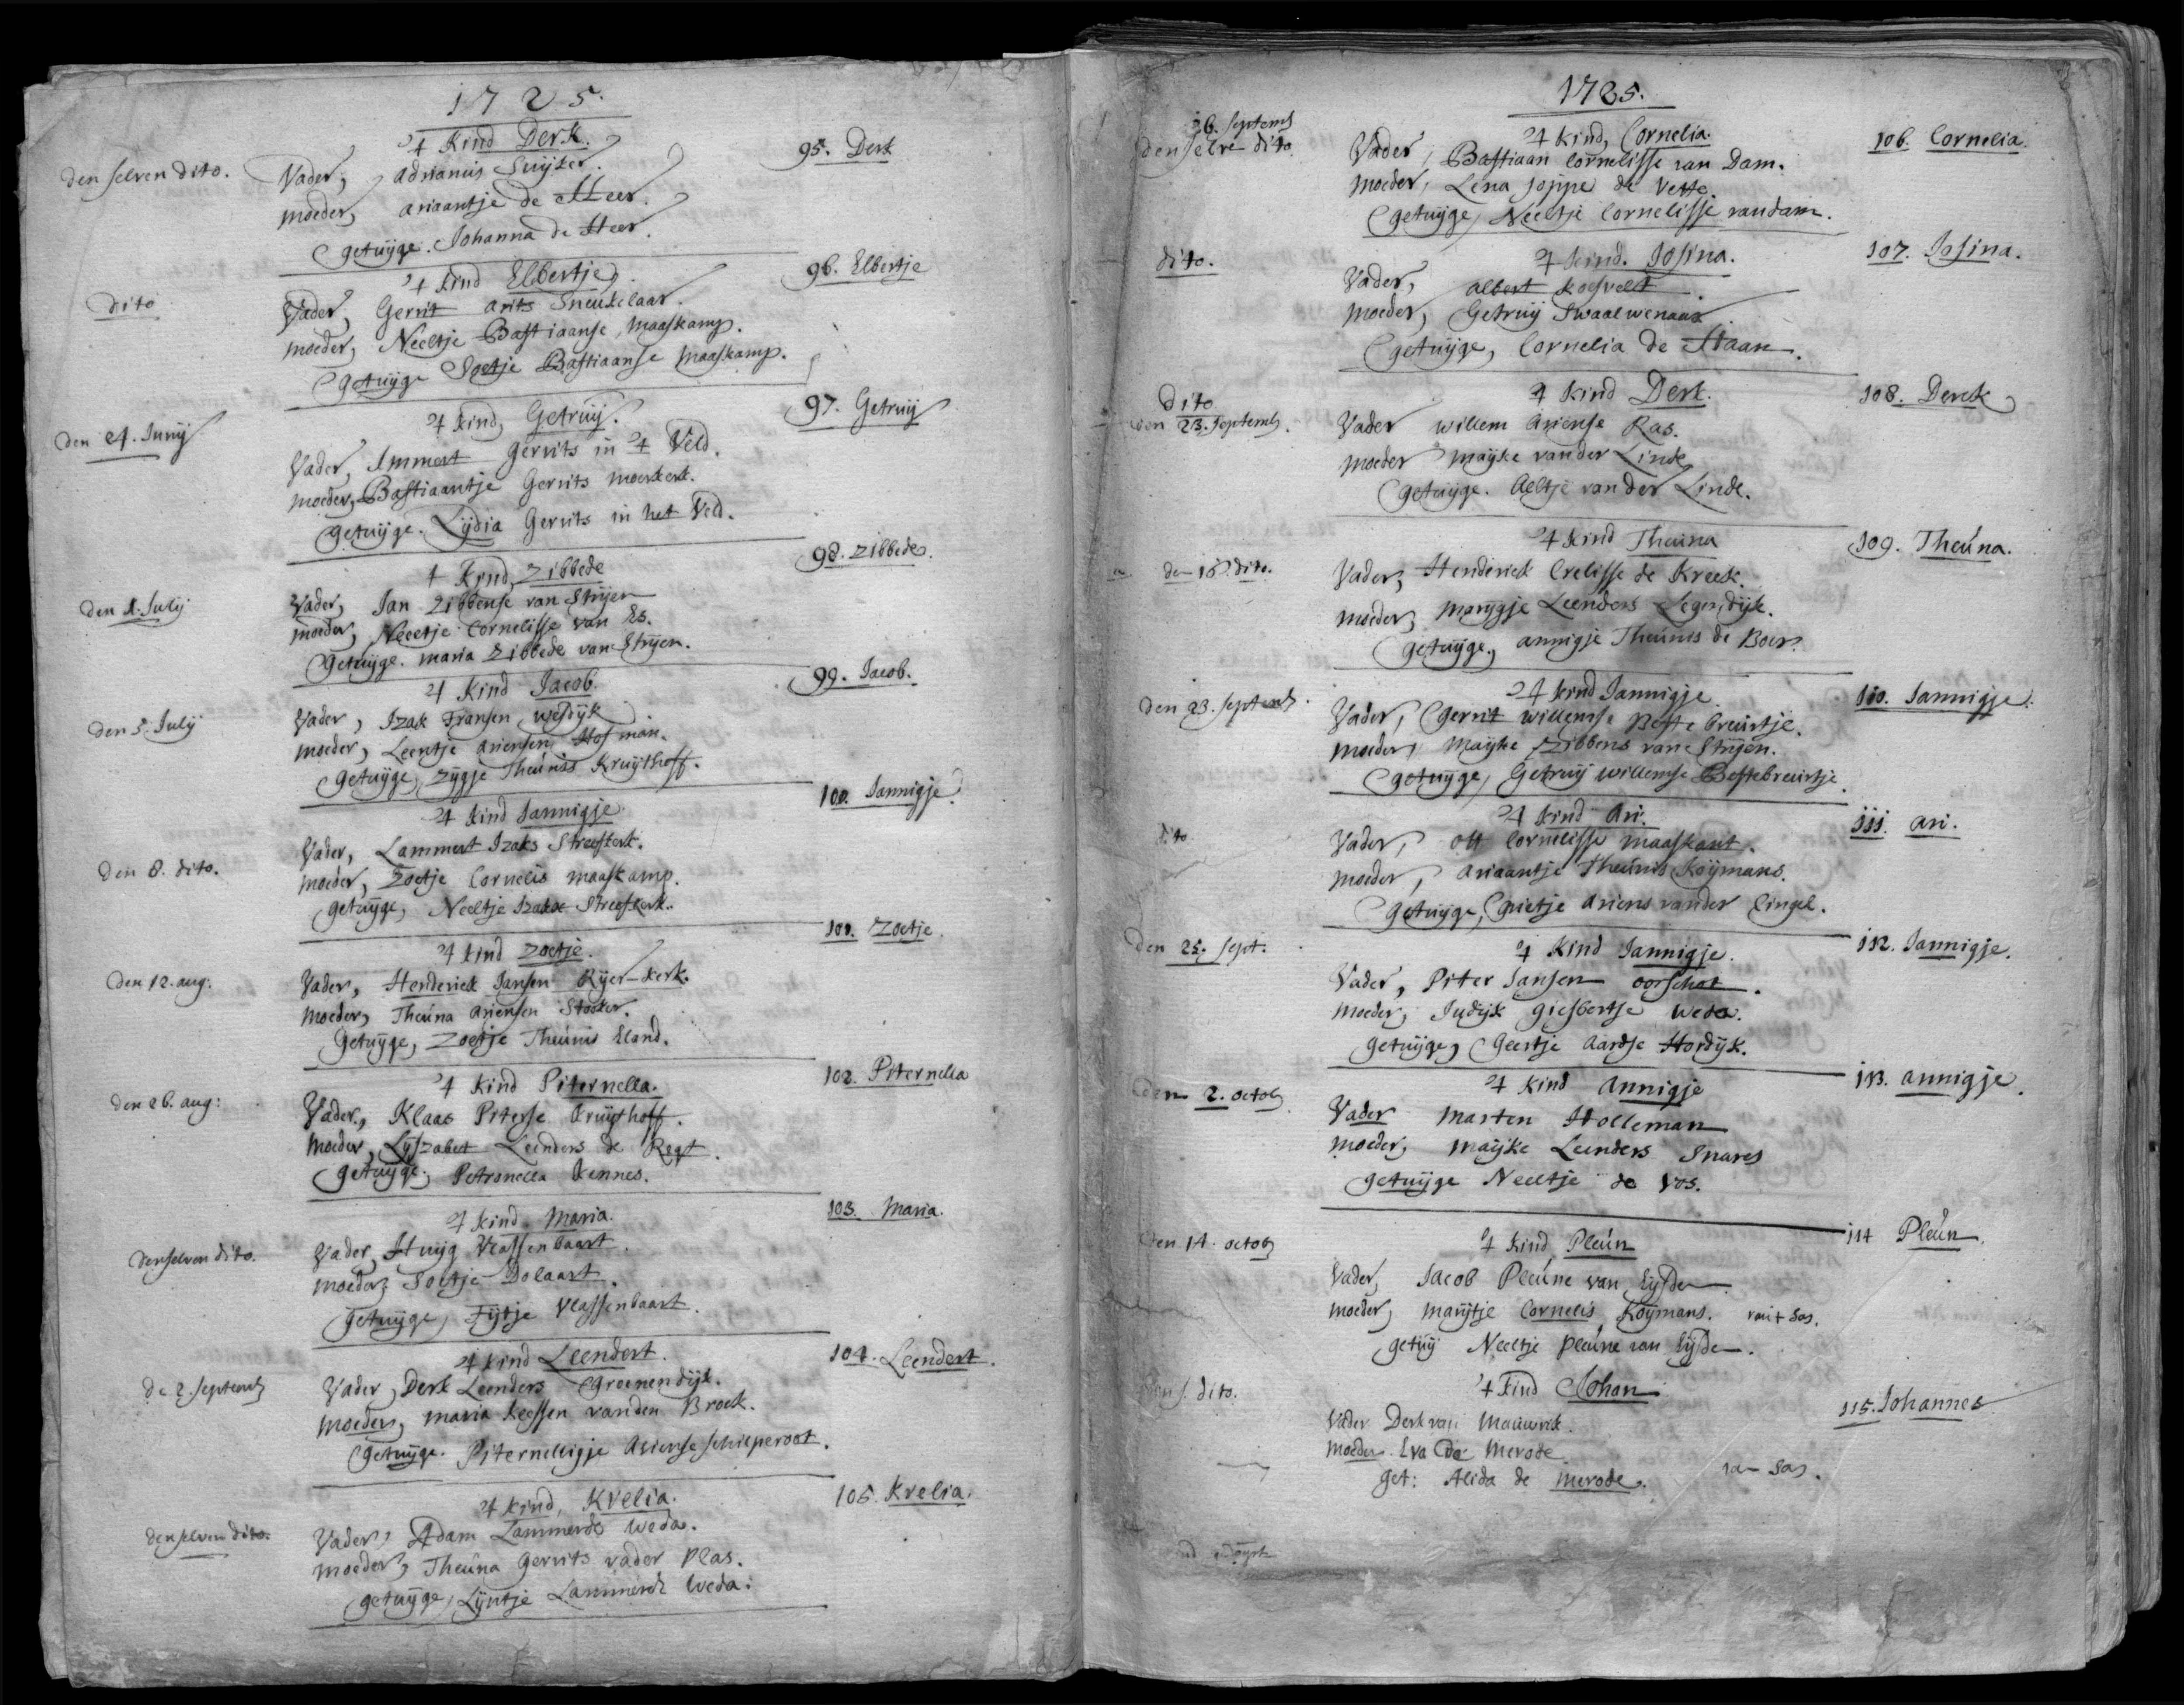 1725.
't Kind Derk.
den selven dito. Vader, Adrianus Suijker. 95. Derk
moeder, ariaantje de Heer.
getuijge. Johanna de Heer.
't kind Elbertje.
dito Vader, Gerrit arits Sneukelaar. 96. Elbertje
moeder, Neeltje Bastiaanse, maaskamp.
getuijge Soetje Bastiaanse maaskamp.
't kind, Getruij.
den 24. Junij Vader, Ammert Gerrits in 't Veld. 97. Getruij
moeder, Bastiaantje Gerrits moerkerk.
getuijge. Lijdia Gerrits in het Veld.
't Kind, Zibbede
den 1. Julij Vader, Jan Zibbense van Strijen 98. Zibbede.
moeder, Neeltje Cornelisse van Es.
Getuijge. maria Zibbede van Strijen.
't Kind Jacob.
den 5. Julij Vader, Izak Fransen Wesdijk. 99. Jacob.
moeder, Leentje ariensen Hofman.
getuijge, Zijgje Theúnis Kruijthoff.
't kind Jannigje.
den 8. dito. Vader, Lammert Izaks Streefkerk. 100. Jannigje.
moeder, Zoetje Cornelis maaskamp.
getuijge, Neeltje Izaks Streefkerk.
't kind Zoetje.
den 12. aug: Vader, Henderick Jansen Rijer-kerk. 101. Zoetje.
moeder, Theúna Ariensen Stooker.
getuijge, Zoetje Theúnis Eland.
't kind Piternella.
den 26. aug: Vader, Klaas Piterse Kruijthoff. 102. Piternella
moeder, Lijszabet Leenders de Regt.
getuijge. Petronella Kennes.
't kind. Maria.
denselven dito. Vader, Huijg Vlassenbaart. 103. Maria.
moeder, Soetje Dolaart.
getuijge, Fijtje Vlassenbaart.
't kind Leendert.
de 2. Septemb Vader, Derk Leenders Groenendijk. 104. Leendert.
moeder, maria Keessen vanden Broek.
getuijge. Piternelligje Ariense schieperoot.
't kind, Krelia.
denselven dito. Vader, Adam Lammerds Weda. 105. Krelia.
moeder, Theúna Gerrits vader Plas.
getuijge, Lijntje Lammerds Weda.
1725.
16. Septemb
't kind, Cornelia.
denselve dito. Vader, Bastiaan Cornelisse van Dam. 106. Cornelia.
moeder, Lena Joppe de Vette.
getuijge, Neeltje Cornelisse vandam.
't kind. Josina.
dito. Vader, albert Koesvelt. 107. Josina.
moeder, Getruij Swaalwenaar.
getuijge, Cornelia de Haan.
't kind Derk.
Dito
den 23. Septemb. Vader willem Ariense Ras. 108. Derck
moeder maijke vander Linde
getuijge. Aeltje vander Linde.
't kind Theúna
den 16. dito. Vader, Henderick Crelisse de Kreek. 109. Theúna.
moeder, Marijgje Leenders Legerdijk.
getuijge, annigje Theunis de Boer.
't kind Jannigje.
den 23. Septemb. Vader, Gerrit Willemse Beste breurtje. 110. Jannigje.
moeder, Maijke Zibbens van Strijen.
getuijge, Getruij willemse Bestebreurtje.
't kind Ari.
dito Vader, Ott Cornelisse maaskant. 111. ari.
moeder, Ariaantje Theúnis Koijmans.
getuijge, Grietje Ariens vander Cingel.
den 25. Sept. 't Kind Jannigje. 112. Jannigje.
Vader, Piter Jansen oorschot.
moeder, Judijk giesbertse Weda.
getuijge, Geertje Aardse Hordijk.
den 2. octob 't kind Annigje 113. annigje.
Vader Marten Holleman
moeder, maijke Leenders Snares
getuijge Neeltje de Vos.
den 14. octob 't kind Pleún 114 Pleún.
Vader, Jacob Pleúne van Eijsden.
moeder, marijtje Cornelis Koijmans. van't Sas.
getuij Neeltje Pleúne van Eijsden.
den s. dito. 't kind Johan 115. Johannes
Vader Derk van Mauwrik.
moeder. Eva de Merode
get: Alida de merode. van Sas.